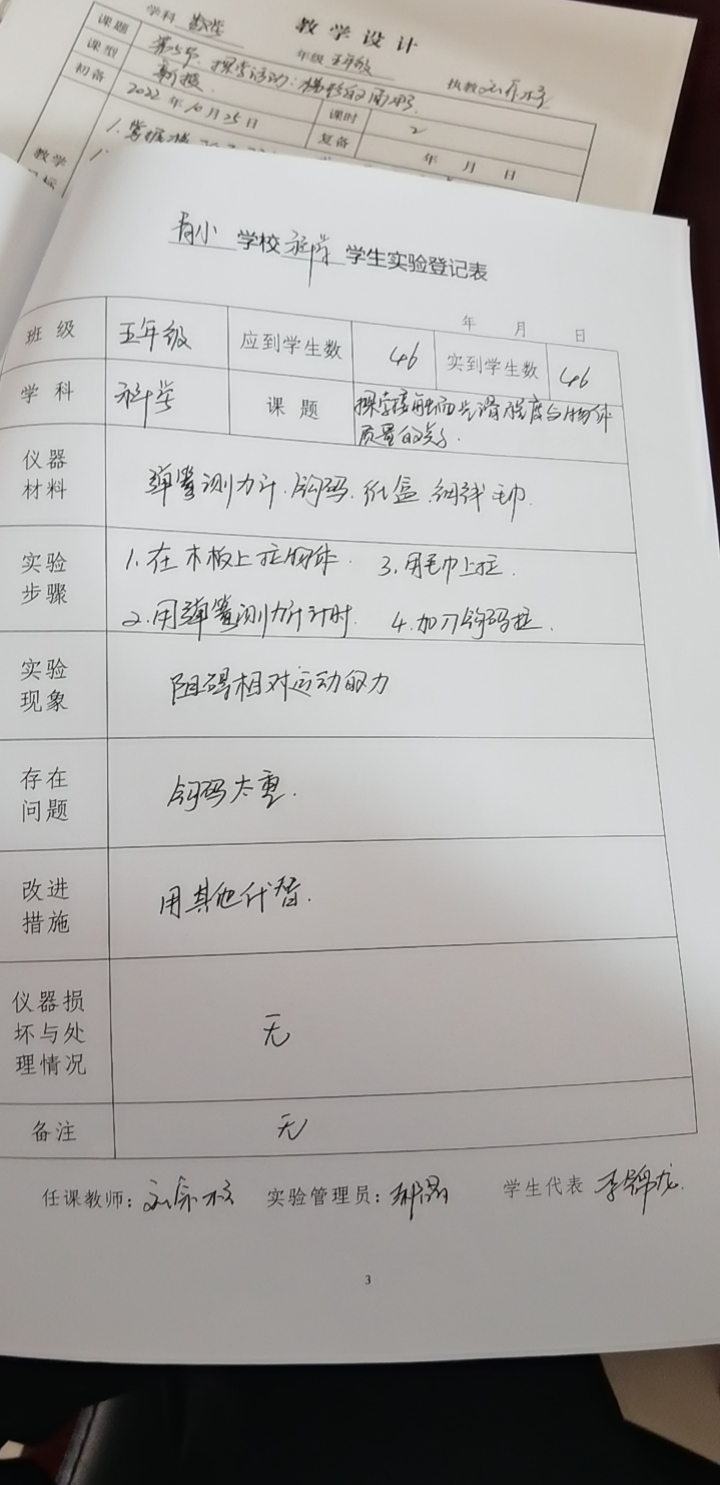 教学设计
学科 数学 年级 五年级 执教
课题 第5节 探索活动：梯形的面积
课型 新授 课时 2
初备 2022年10月25日 复备 年 月 日
教学
1.掌握
小 学校 科学 学生实验登记表
年 月 日
班级 五年级 应到学生数 46 实到学生数 46
学科 科学 课题 探究接触面光滑程度与物体
质量的关系.
仪器
材料
弹簧测力计.钩码.纸盒.细线 毛巾.
实验
步骤
1.在木板上拉物体. 3.用毛巾上拉.
2.用弹簧测力计计时. 4.加几钩码拉.
实验
现象
阻碍相对运动的力
存在
问题
钩码太重.
改进
措施
用其他代替.
仪器损
坏与处
理情况
无
备注 无
任课教师： 实验管理员： 学生代表 李锦龙.
3